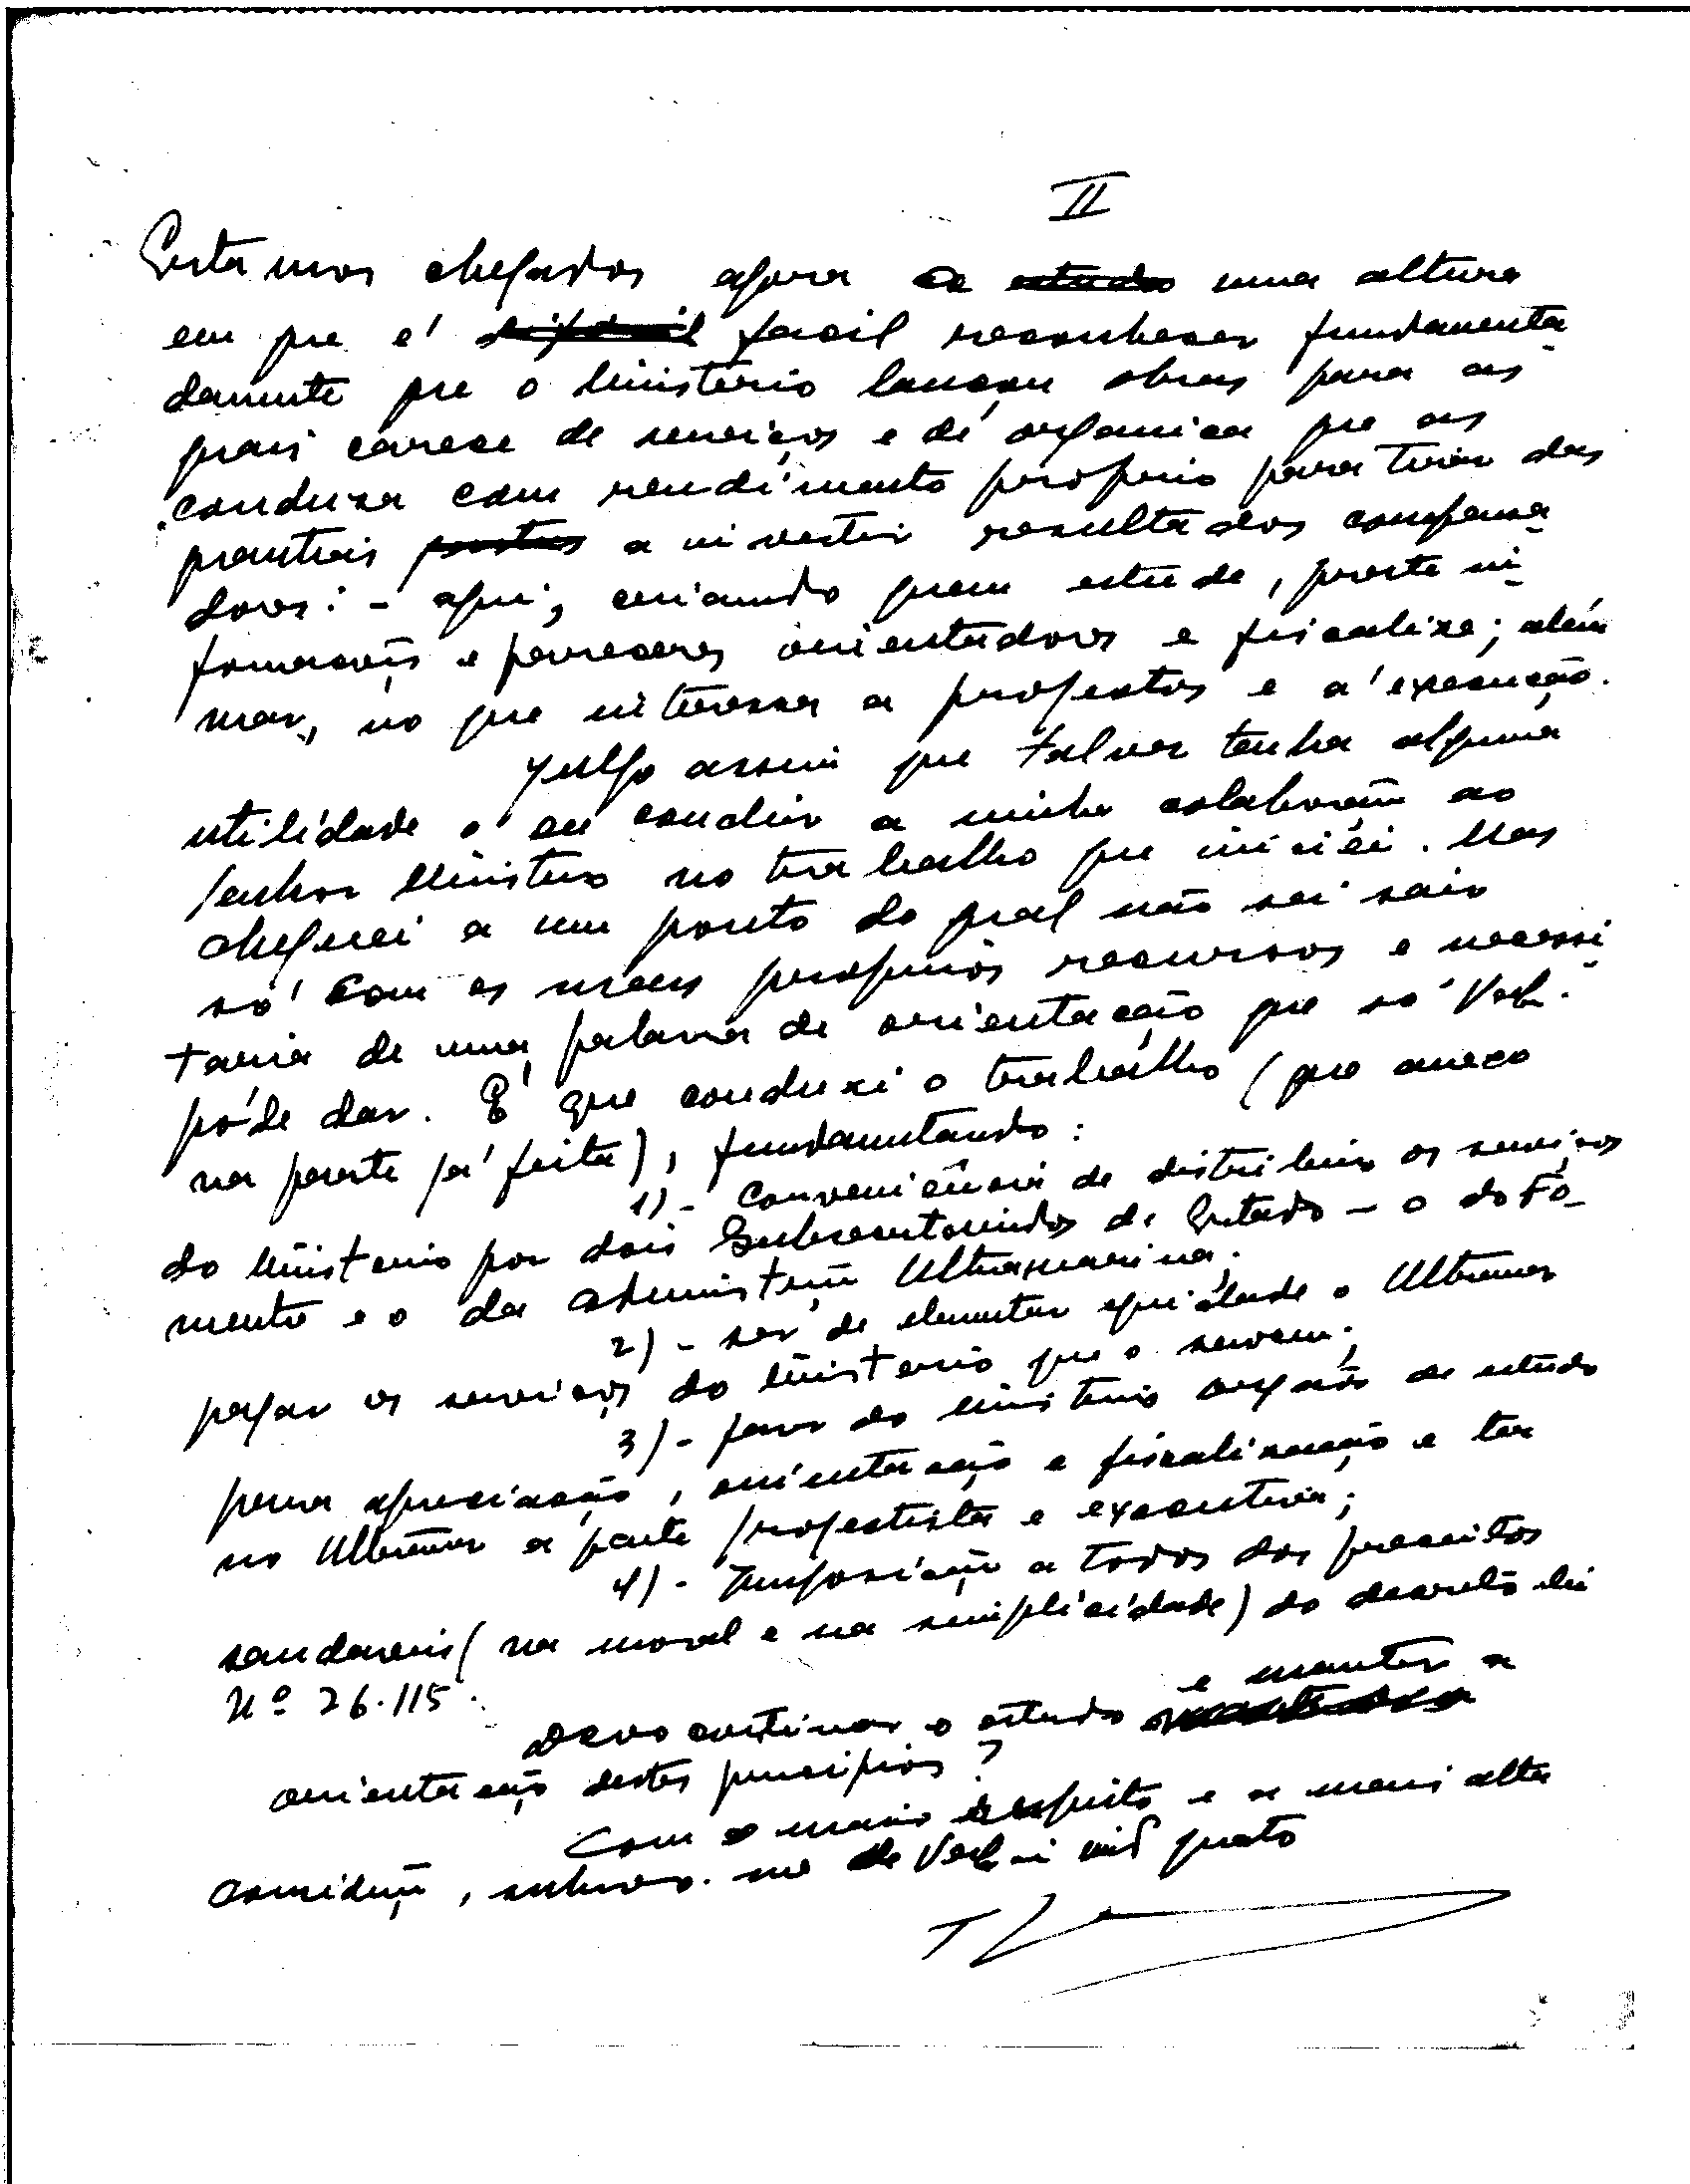 II
Estamos chegados agora a estudo uma altura
em que é facil reconhecer fundamenta
damente que o Ministério lançou obras para as
quais carece de serviços e de organica que as
conduza com rendimento proprio para tirar das
quantias postas a investir resultados compensa
dores: - aqui, criando quem estude, preste in
formações e pareceres orientadores e fiscalize; além
mar, no que interessa a projectos e a execução.
Julgo assim que talvez tenha alguma
utilidade o eu concluir a minha colaboração ao
Senhor Ministro no trabalho que iniciei. Mas
cheguei a um ponto do qual não sei sair
só com os meus proprios recursos e necessi
taria de uma palavra de orientação que só VExª.
póde dar. É que conduzi o trabalho (que anexo
na parte já feita), fundamentando:
1) - Conveniência de distribuir os serviços
do Ministerio por dois Subsecretariados de Estado - o do Fo-
mento e o da Administração Ultramarina.
2) - ser de elementar equidade o Ultramar
pagar os serviços do Ministerio que o servem;
3) - do Ministerio orgão de estudo
para apreciação, orientação e fiscalização e ter
no Ultramar a parte projectista e executiva;
4) - Imposição a todos dos preceitos
saudaveis (na moral e na simplicidade) do decreto lei
Nº 26.115.
Devo continuar o estudo e manter a
orientação destes principios?
Com o maior respeito e a mais alta
consideração, subscrevo-me de VExª. grato